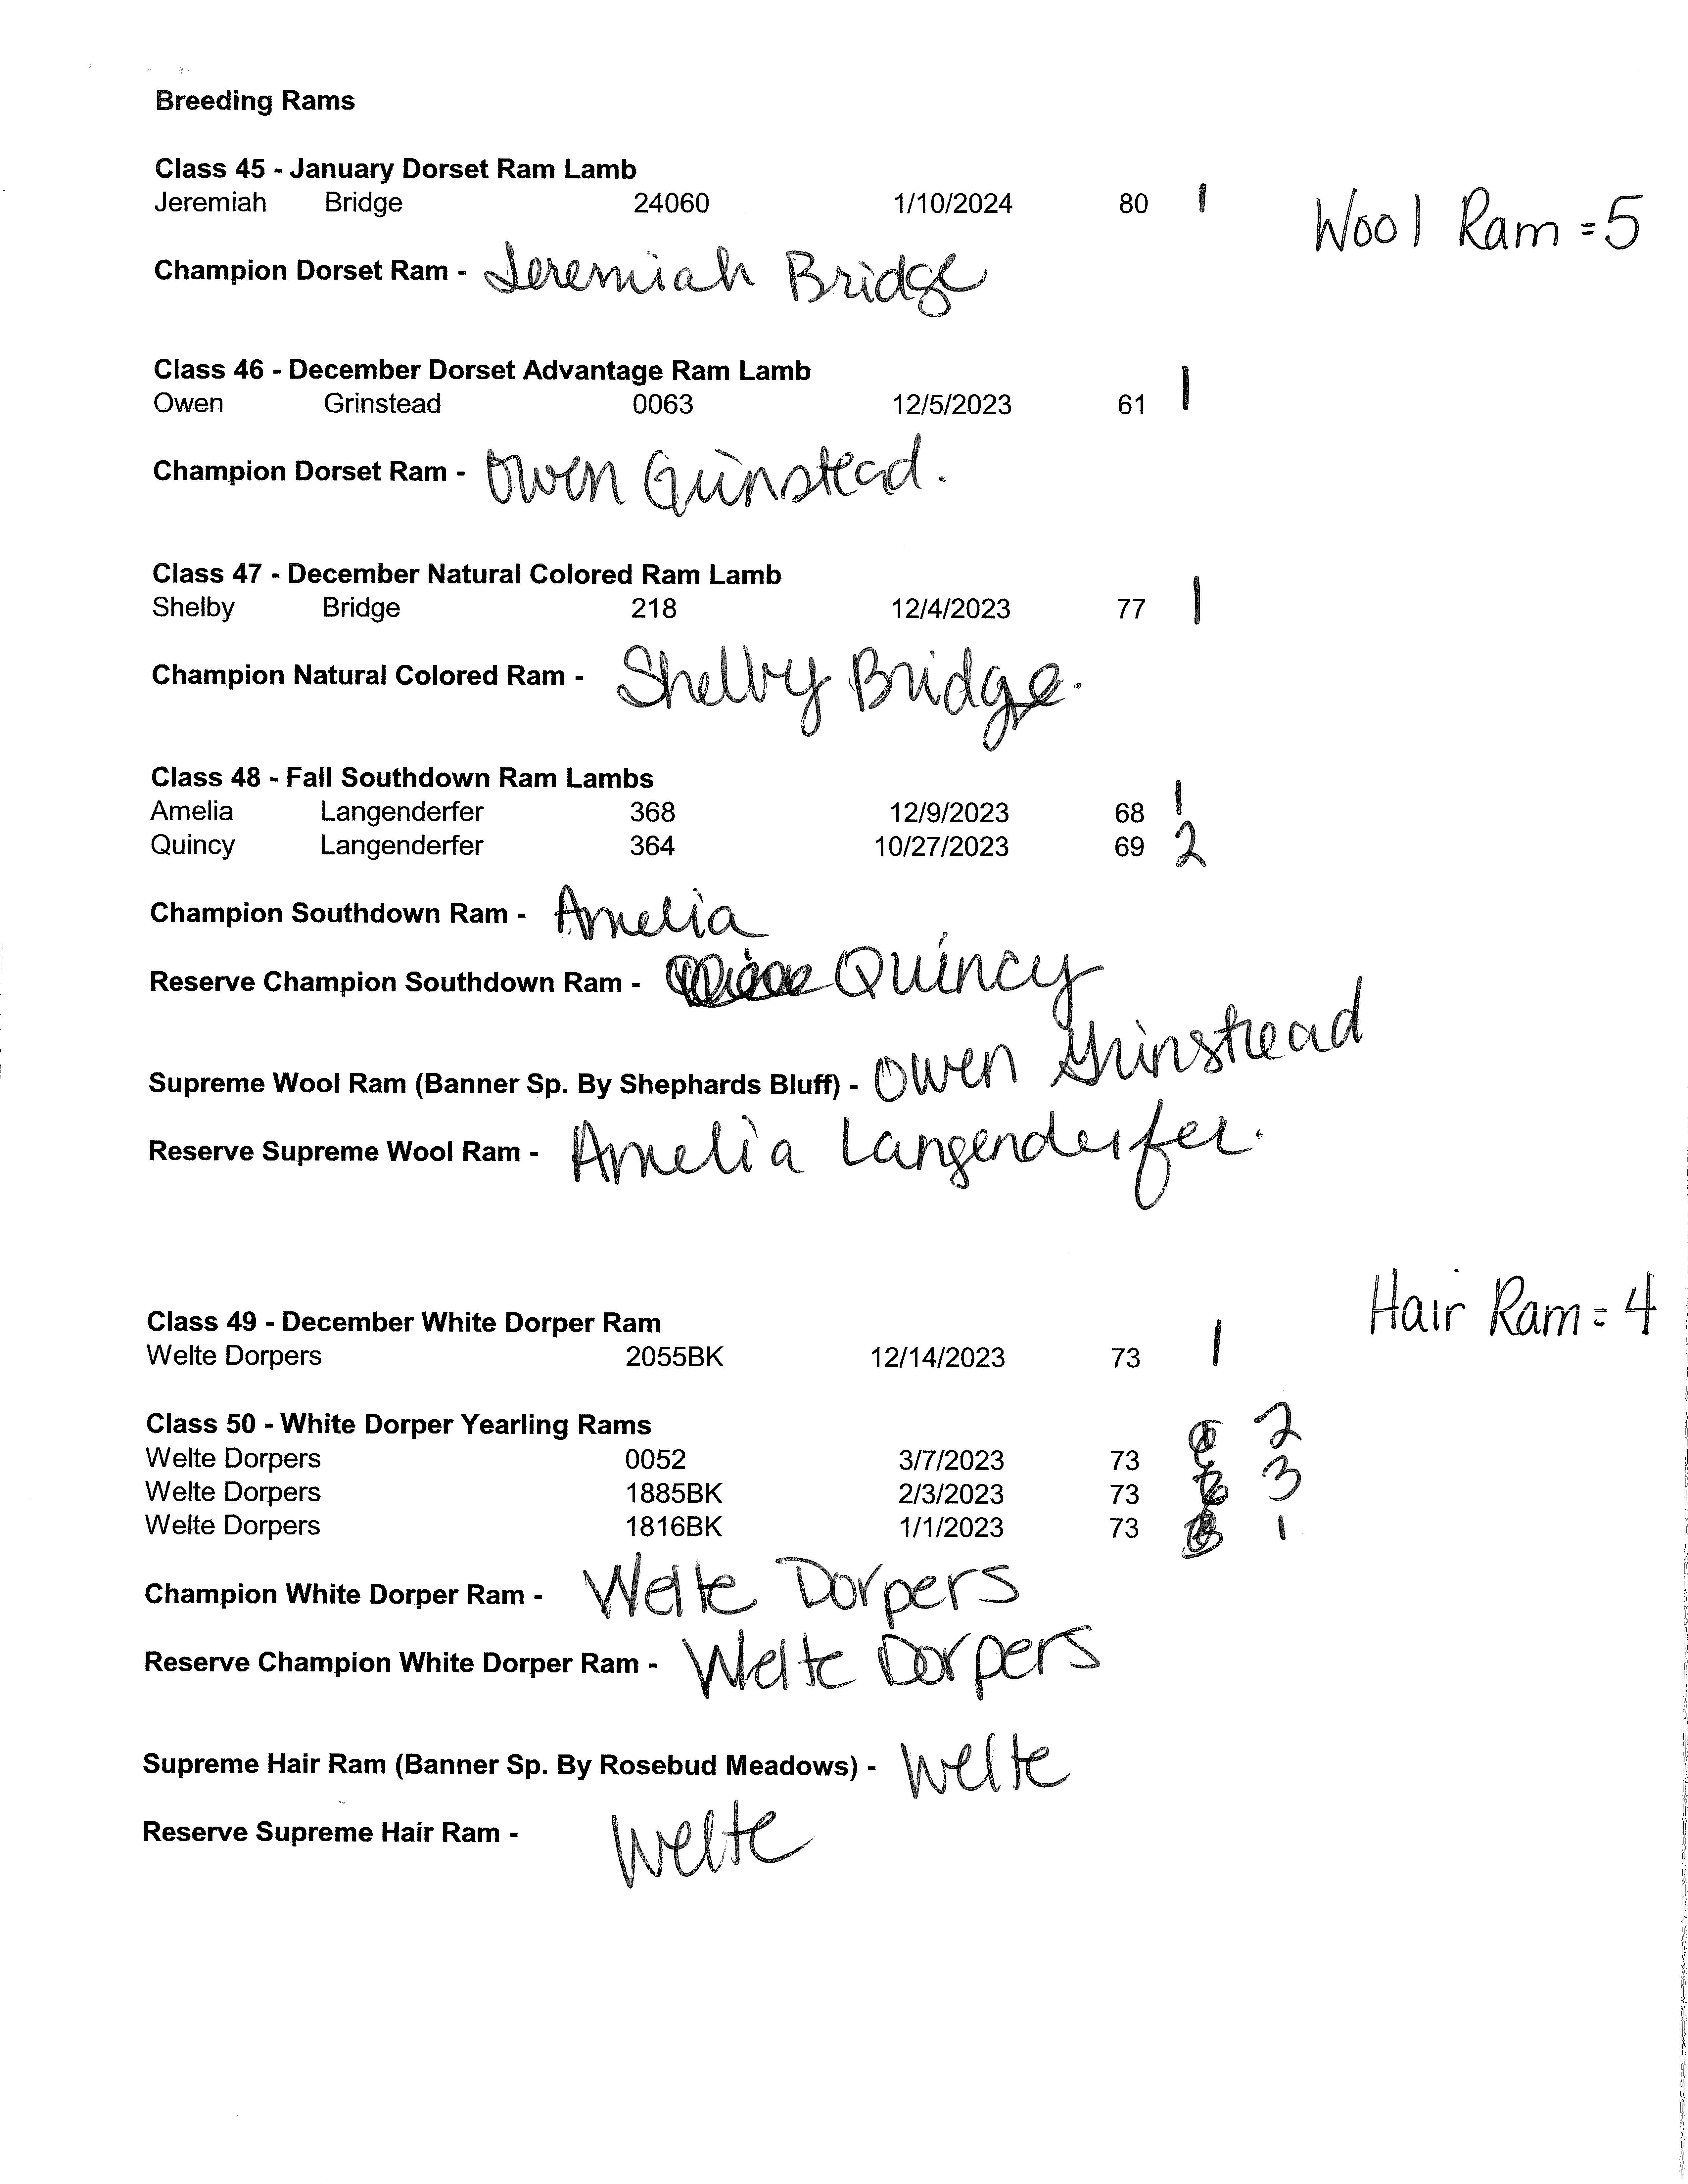 Breeding Rams
Class 45 - January Dorset Ram Lamb
Jeremiah Bridge 24060 1/10/2024 80 1
Wool Ram = 5
Champion Dorset Ram - Jeremiah Bridge
Class 46 - December Dorset Advantage Ram Lamb
Owen Grinstead 0063 12/5/2023 61 1
Champion Dorset Ram - Owen Grinstead.
Class 47 - December Natural Colored Ram Lamb
Shelby Bridge 218 12/4/2023 77 1
Champion Natural Colored Ram - Shelby Bridge.
Class 48 - Fall Southdown Ram Lambs
Amelia Langenderfer 368 12/9/2023 68 1
Quincy Langenderfer 364 10/27/2023 69 2
Champion Southdown Ram - Amelia
Reserve Champion Southdown Ram - Quincy
Supreme Wool Ram (Banner Sp. By Shephards Bluff) - Owen Grinstead
Reserve Supreme Wool Ram - Amelia Langenderfer.
Hair Ram = 4
Class 49 - December White Dorper Ram
Welte Dorpers 2055BK 12/14/2023 73 1
Class 50 - White Dorper Yearling Rams
Welte Dorpers 0052 3/7/2023 73 2
Welte Dorpers 1885BK 2/3/2023 73 3
Welte Dorpers 1816BK 1/1/2023 73 1
Champion White Dorper Ram - Welte Dorpers
Reserve Champion White Dorper Ram - Welte Dorpers
Supreme Hair Ram (Banner Sp. By Rosebud Meadows) - Welte
Reserve Supreme Hair Ram - Welte